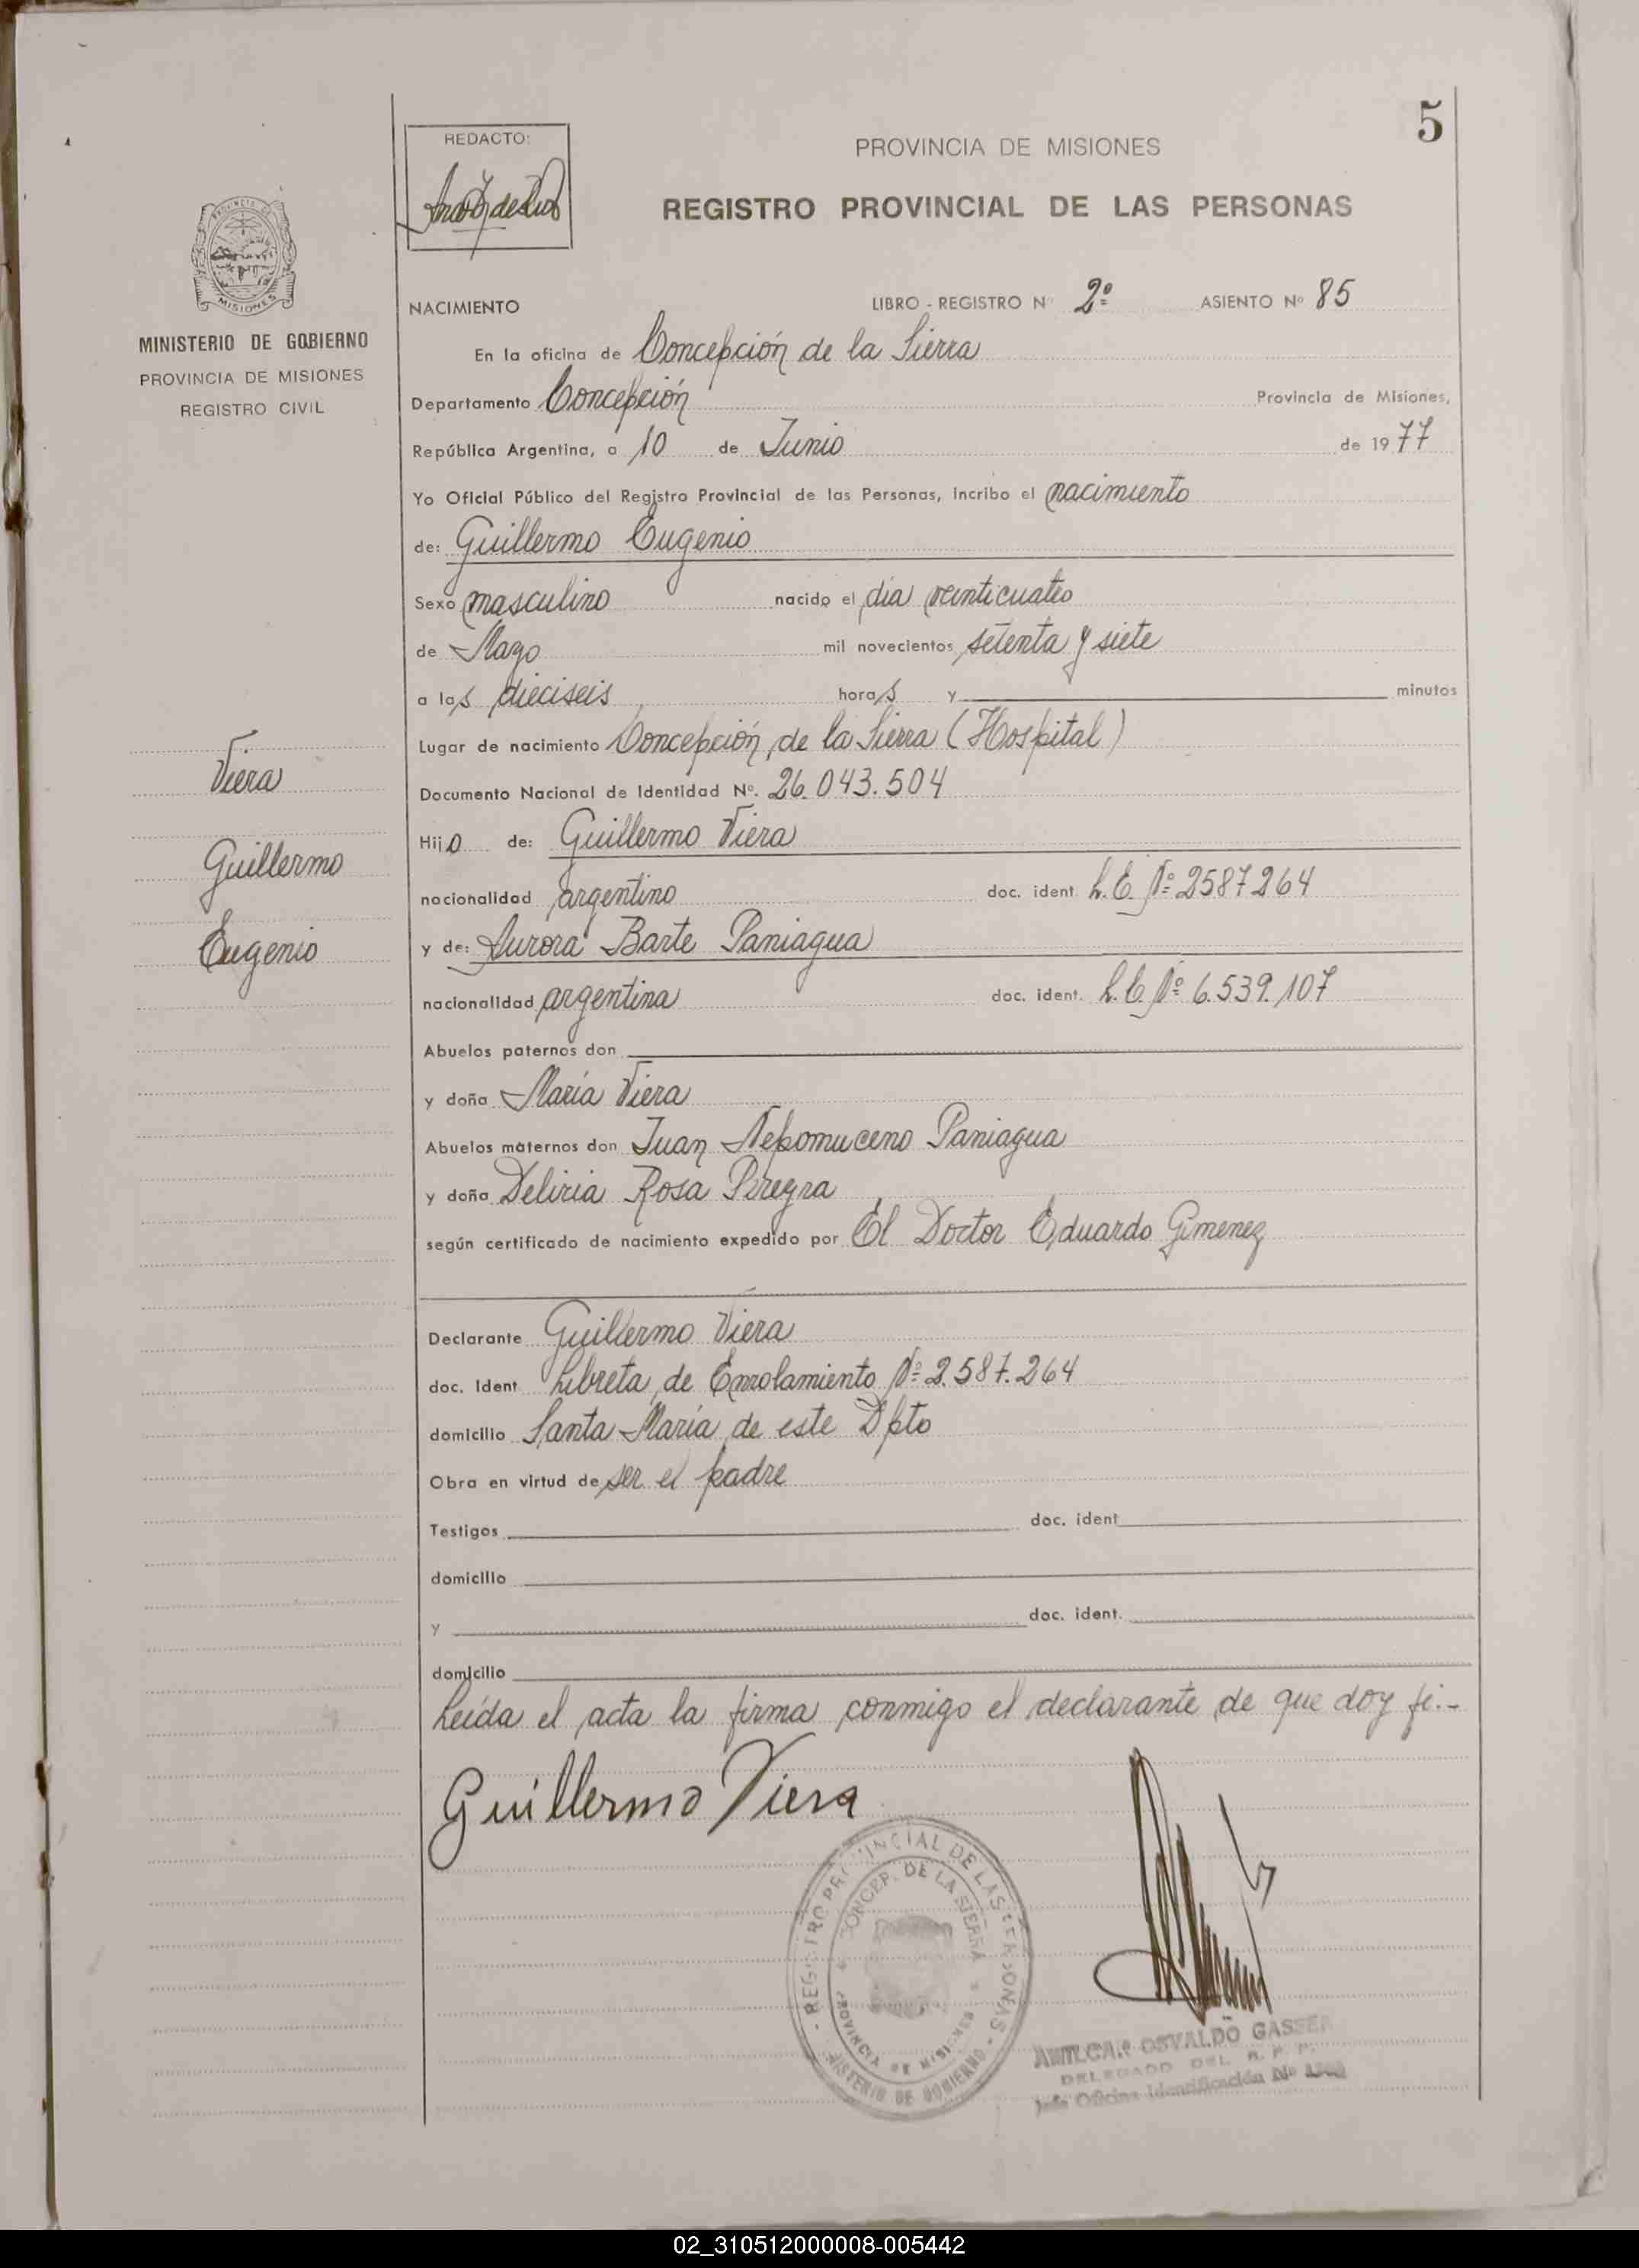 5
REDACTO:
PROVINCIA DE MISIONES
REGISTRO PROVINCIAL DE LAS PERSONAS
MISIONES
MINISTERIO DE GOBIERNO
PROVINCIA DE MISIONES
REGISTRO CIVIL
NACIMIENTO LIBRO - REGISTRO Nº 2º ASIENTO Nº 85
En la oficina de Concepción de la Sierra
Departamento Concepción Provincia de Misiones,
República Argentina, a 10 de Junio de 1977
Yo Oficial Público del Registro Provincial de las Personas, incribo el nacimiento
de: Guillermo Eugenio
Sexo masculino nacido el día veinticuatro
de Mayo mil novecientos setenta y siete
a las dieciseis horas y minutos
Lugar de nacimiento Concepción de la Sierra (Hospital)
Documento Nacional de Identidad Nº. 26.043.504
Hijo de: Guillermo Viera
nacionalidad argentino doc. ident. L.E. Nº 2587264
y de: Aurora Barte Paniagua
nacionalidad argentina doc. ident. L.C. Nº 6.539.107
Abuelos paternos don
y doña María Viera
Abuelos maternos don Juan Nepomuceno Paniagua
y doña Deliria Rosa Pereyra
según certificado de nacimiento expedido por El Doctor Eduardo Gimenez
Declarante Guillermo Viera
doc. Ident Libreta de Enrolamiento Nº 2.587.264
domicilio Santa María de este Dpto
Obra en virtud de ser el padre
Testigos doc. ident
domicilio
y doc. ident.
domicilio
Leída el acta la firma conmigo el declarante de que doy fe.-
Guillermo Viera
Viera
Guillermo
Eugenio
REGISTRO PROVINCIAL DE LAS PERSONAS
MINISTERIO DE GOBIERNO
CONCEP. DE LA SIERRA
PROVINCIA DE MISIONES
AMILCAR OSVALDO GASSER
DELEGADO DEL R. P. P.
Jefe Oficina Identificación Nº
02_310512000008-005442